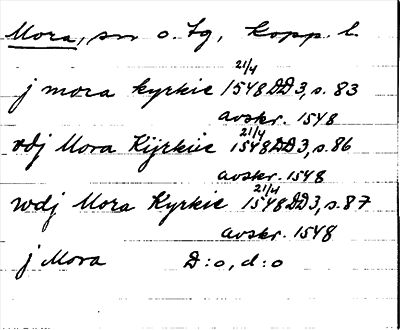 Mora, sn o. tg, Kopp. l.
j mora kyrkie 21/4 1548 DD3, s. 83
avskr. 1548
vdj Mora Kijrkiie 21/4 1548 DD3, s. 86
avskr. 1548
wdj Mora Kyrkie 21/4 1548 DD3, s. 87
avskr. 1548
j Mora D:o, d:o